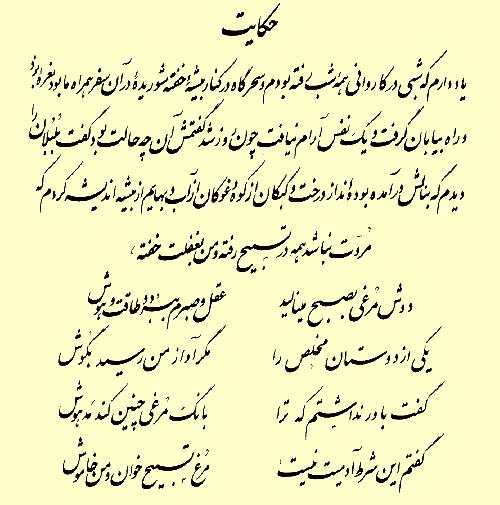 حکایت
یاد دارم که شبی در کاروانی همه شب رفته بودم و سحرگاه در کنار بیشهٔ خفته شوریدهٔ در آن سفر همراه ما بود نعرهٔ بزد
و راه بیابان گرفت و یک نفس آرام نیافت چون روز شد گفتمش آن چه حالت بود گفت بلبلان را
دیدم که بنالش درآمده بوده‌اند از درخت و کبکان از کوه و غوکان از آب و بهایم از بیشه اندیشه کردم که
مروّت نباشد همه در تسبیح رفته و من بغفلت خفته
دوش مرغی بصبح مینالید عقل و صبرم ببرد و طاقت و هوش
یکی از دوستان مخلص را مگر آواز من رسید بگوش
گفت باور نداشتم که ترا بانگ مرغی چنین کند مدهوش
گفتم این شرط آدمیت نیست مرغ تسبیح خوان و من خاموش